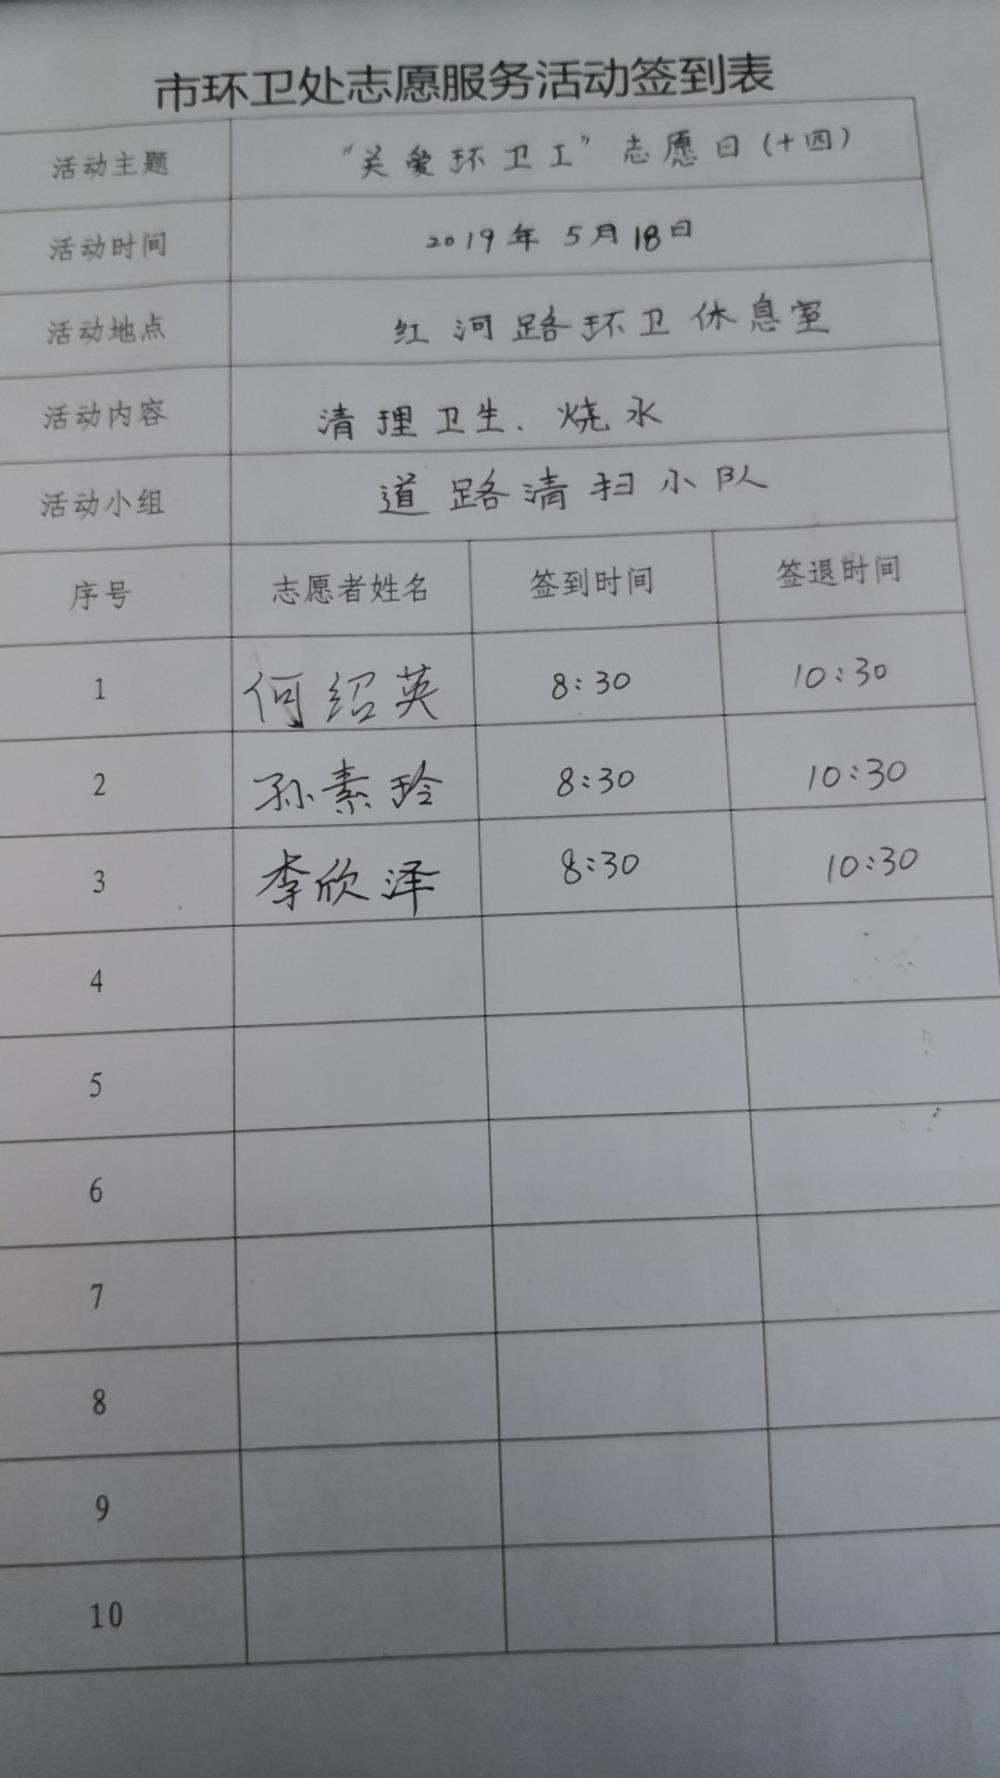 市环卫处志愿服务活动签到表
活动主题 “关爱环卫工”志愿日(十四)
活动时间 2019年5月18日
活动地点 红河路环卫休息室
活动内容 清理卫生、烧水
活动小组 道路清扫小队
序号 志愿者姓名 签到时间 签退时间
1 何绍英 8:30 10:30
2 孙素玲 8:30 10:30
3 李欣泽 8:30 10:30
4
5
6
7
8
9
10